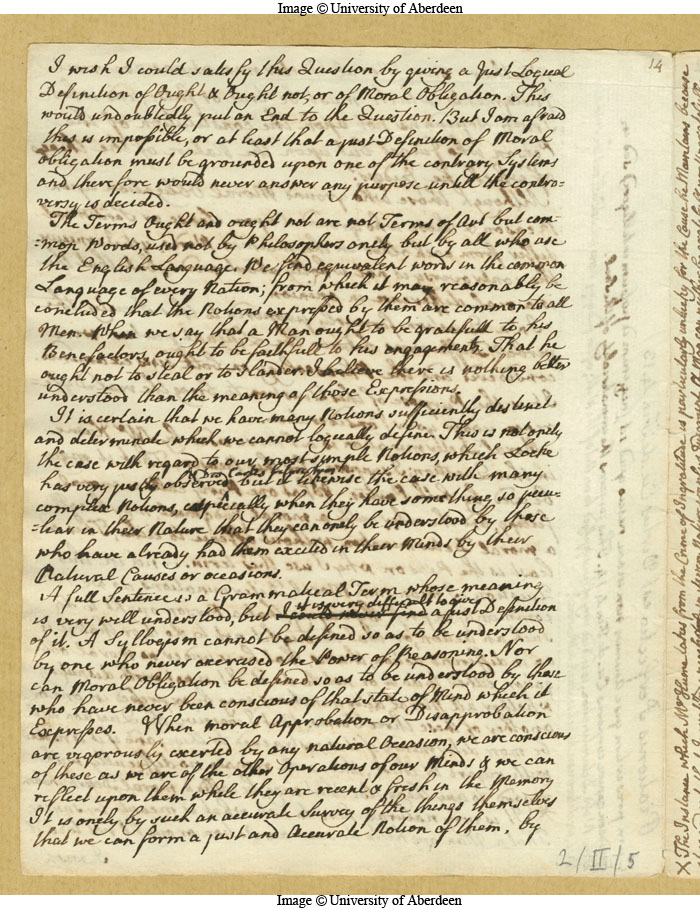 Image © University of Aberdeen
14
I wish I could satisfy this Question by giving a Just Logical
Definition of Ought & Ought not, or of Moral Obligation. This
would undoubtedly put an End to the Question. But I am afraid
this is impossible, or at least that a just Definition of Moral
obligation must be grounded upon one of the contrary Systems
and therefore would never answer any purpose untill the contro=
versy is decided.
The Terms Ought and ought not are not Terms of Art but com=
=mon Words, used not by Philosophers onely but by all who use
the English Language. We find equivalent words in the common
Language of every Nation; from which it may reasonably be
concluded that the Notions expressed by them are common to all
Men. When we say that a Man ought to be gratefull to his
Benefactors, ought to be faithfull to his engagements, That he
ought not to steal or to slander. I believe there is nothing better
understood than the meaning of those Expressions.
It is certain that we have many Notions sufficiently distinct
and determinate which we cannot logically define. This is not onely
the case with regard to our most simple Notions, which Locke
has very justly observed but it likewise the case with many
complex Notions, especially when they have something so pecu=
=liar in their Nature that they can onely be understood by those
who have already had them excited in their Minds by their
Natural Causes or occasions.
A full Sentence is a Grammatical Term whose meaning
it is very difficult to give
is very well understood, but a just Definition
of it. A Syllogism cannot be defined so as to be understood
by one who never exercised the Power of Reasoning. Nor
can Moral Obligation be defined so as to be understood by those
who have never been conscious of that state of Mind which it
Expresses. When moral Approbation or Disapprobation
are vigorously exerted by any natural Occasion, we are conscious
of these as we are of the other Operations of our Minds & we can
reflect upon them while they are recent & fresh in the Memory
It is onely by such an accurate Survey of the things themselves
that we can form a just and Accurate Notion of them, by
2/II/5
X The Instance which Mr Hume takes from the Crime of Ingratitude is particularly unlucky for the Cause he Maintains because
Image © University of Aberdeen